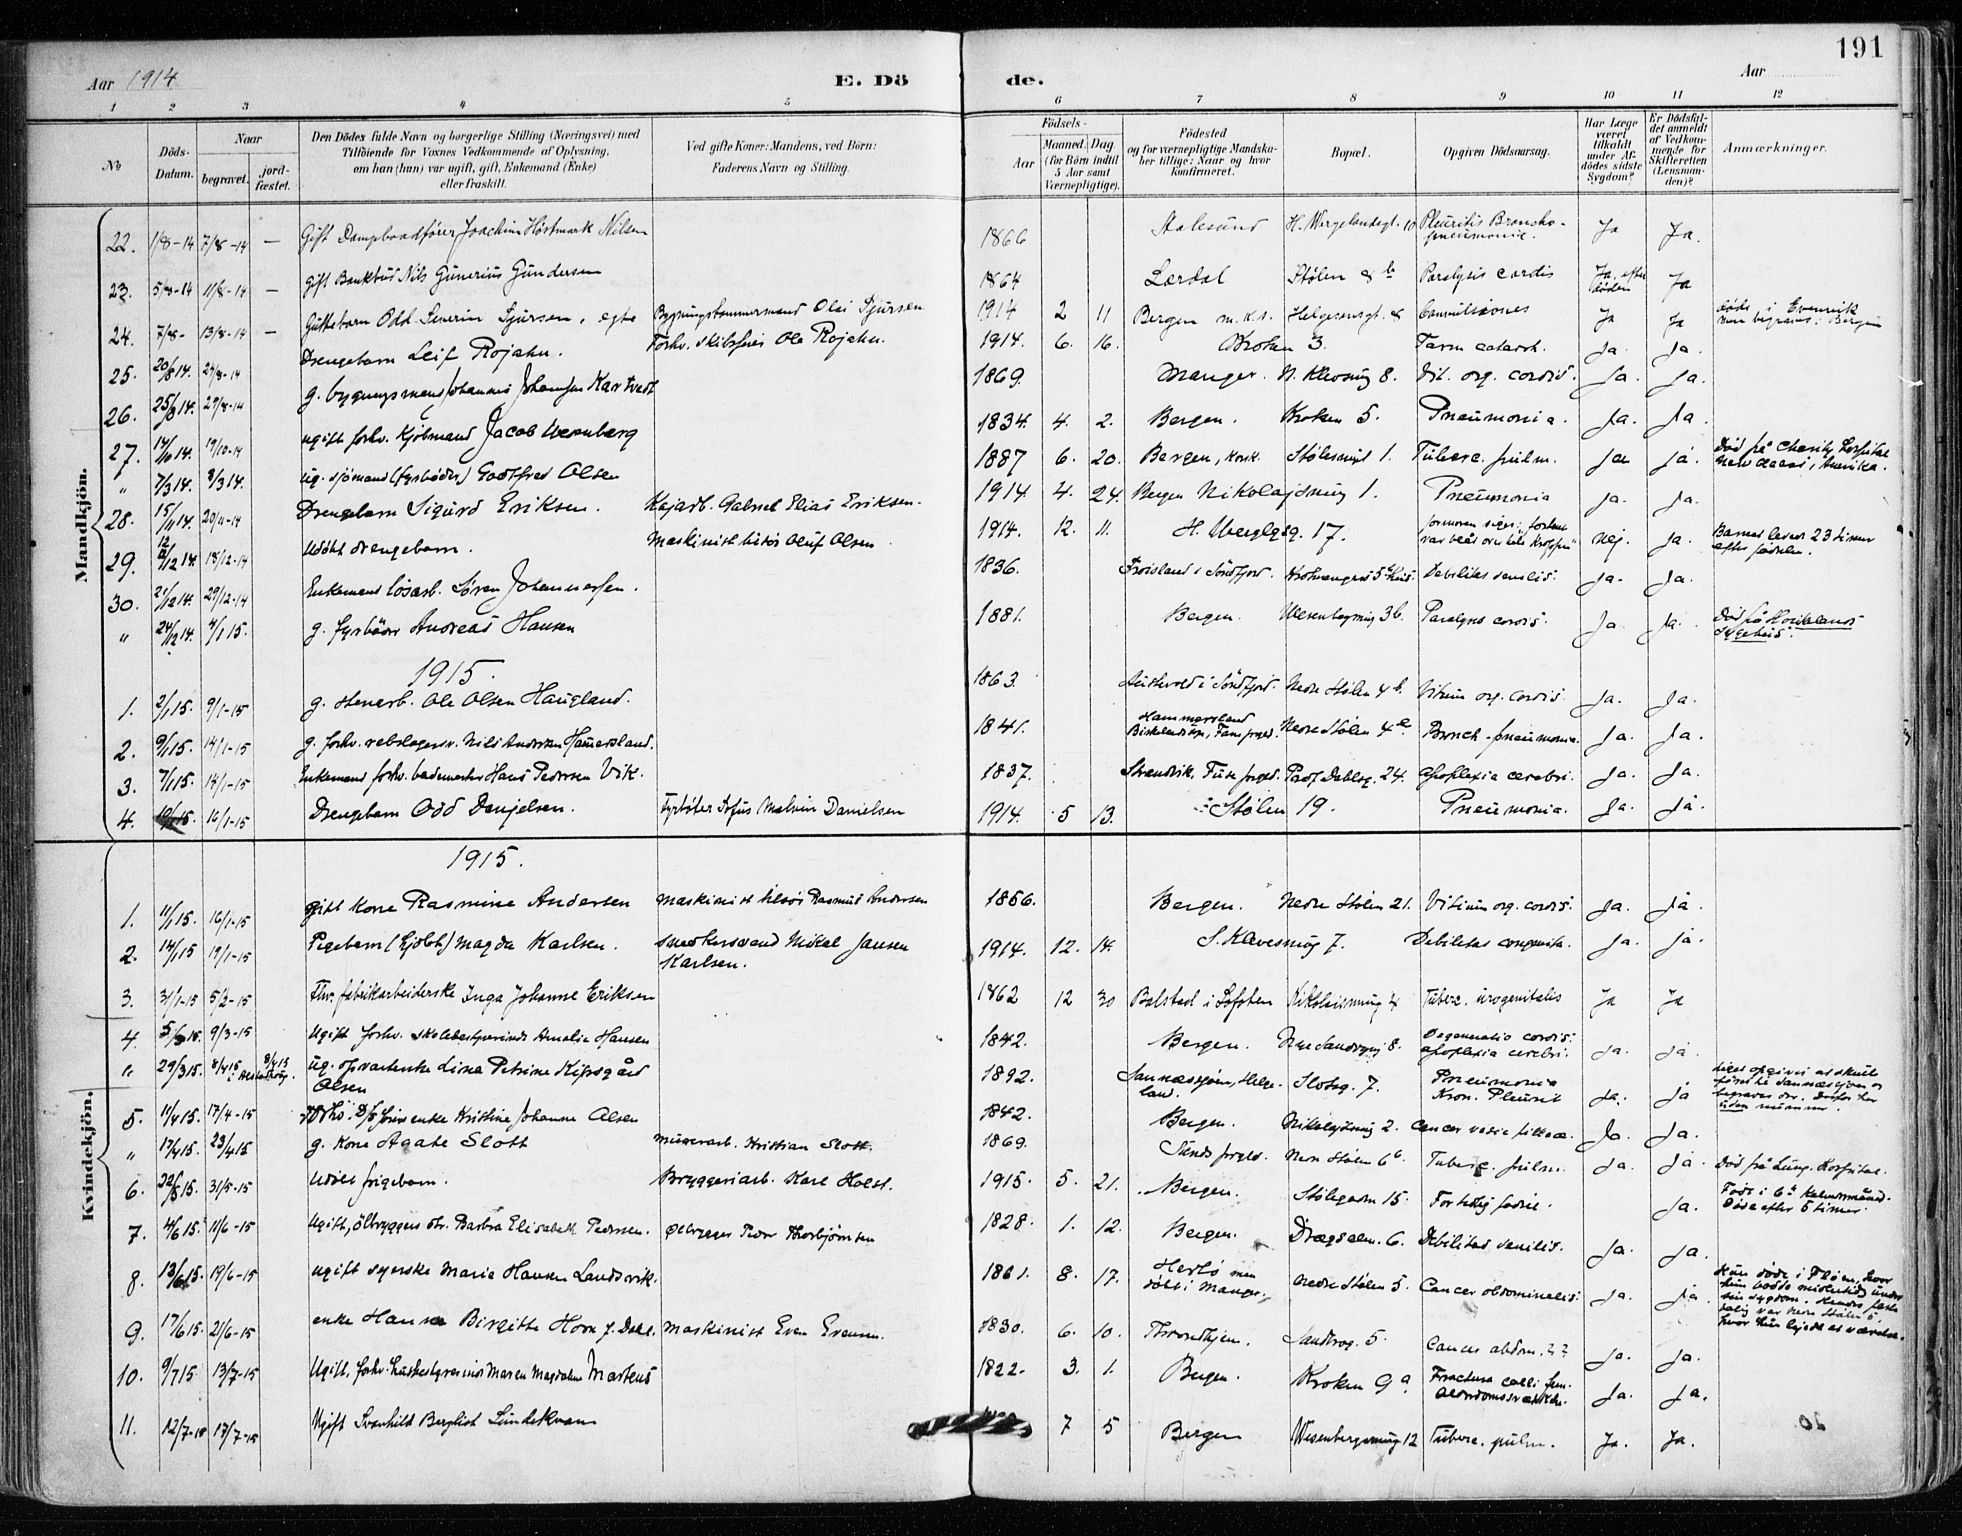 191
Aar 1914
E. Dö
de.
Aar
1 2 3 4 5 6 7 8 9 10 11 12
No
Döds-Datum.
Naar
begravet.
jord-fæstet.
Den Dödes fulde Navn og borgerlige Stilling (Næringsvei) med
Tilföiende for Voxnes Vedkommende af Oplysning,
om han (hun) var ugift, gift, Enkemand (Enke)
eller fraskilt.
Ved gifte Koner: Mandens, ved Börn:
Faderens Navn og Stilling.
Födsels-
Aar
Maaned. Dag.
(for Börn indtil
5 Aar samt
Værnepligtige).
Födested
og for værnepligtige Mandska-
ber tillige: Naar og hvor
konfirmeret.
Bopæl.
Opgiven Dödsaarsag.
Har Læge
været
tilkaldt
under Af-
dödes sidste
Sygdom?
Er Dödsfal-
det anmeldt
af Vedkom-
mende for
Skifteretten
(Lensman-
den)?
Anmærkninger.
Mandkjön.
22. 1/8-14 7/8-14 — Gift Dampbaadfører Joachim Höstmark Nilsen 1866 Aalesund H. Wergelandsgt. 10 Pleuritis Broncho-pneumonie. Ja Ja.
23. 5/8-14 11/8-14 — Gift Bankbud Nils Gunerius Gundersen 1864 Lærdal Stølen 8 b Paralysis cordis Ja, efter døden Ja
24. 7/8- 13/8-14 — Guttebarn Odd Severin Sjursen, egte Bygningstømmermand Olai Sjursen 1914 2 11 Bergen Helgesensgt. 8 Convulsiones Ja Ja døde i Evenvik men begraves i Bergen
25. 20/8 14. 24/8-14 Drengebarn Leif Rojahn. Forhv. skibsfører Ole Rojahn. 1914. 6. 16. Kroken 3. Tarm catarrh. Ja. Ja.
26. 25/8 14. 29/8-14 g. bygningsmand Johannes Johansen Kartveit 1869. Manger. N. Klevsmug 8. Vit. org. cordis. Ja. Ja.
27. 14/10 14. 19/10-14 ugift forhv. Kjöbmand Jacob Wesenberg 1834. 4. 2. Bergen. Kroken 5. Pneumonia. Ja. Ja
" 7/3 14. 8/3 14. ug. sjömand (fyrböder) Godtfred Olsen 1887 6. 20. Bergen, Stölesmug 1. Tuberc. pulm. Ja ja. Död på Charity Hospital New Orleans, Amerika.
28. 15/11 14. 20/11-14 Drengebarn Sigurd Eriksen. Kajarb. Gabriel Elias Eriksen. 1914 4. 24. Bergen Nikolajsmug 1. Pneumonia ja. Ja.
29. 12/12 14. 18/12-14 Udöbt drengebarn. Maskinist Oluf Olsen 1914. 12. 11. 17. Nej. Ja. Barnet levede 23 timer efter fødselen.
30. 21/12 14. 29/12-14 Enkemand lösarb. Sören Johannesen. 1836. i Söndfjord. Debilitas senilis. Ja. Ja.
" 24/12 14. 4/1 15. g. fyrböder Andreas Hansen 1881. Bergen. Wesenbergsmug 3b. Paralysis cordis. Ja. Ja. Död på Haukelands Sygehus.
1915.
1. 2/1 15. 9/1-15 g. stenarb. Ole Olsen Haugland. 1863. i Söndfjord. Nedre Stölen 4 b. Vitium org. cordis. Ja. Ja.
2. 9/1 15. 14/1-15 g. forhv. rebslagersv. Nils Andersen Hamersland. 1841. Hammersland Nedre Stölen 4 Bronch-pneumonia. Ja. Ja.
3. 7/1 15. 14/1-15 Enkemand forhv. bademester Hans Pedersen Vik. 1837. Strandvik, Fuse prgld. Prof Dahlsg. 24. apoplexia cerebri. Ja. Ja.
4. 10/1 15. 16/1-15 Drengebarn Odd Danjelsen. Fyrböter Sofus Malvin Danielsen 1914. 5 13. Stölen 19. Pneumonia. Ja. Ja
Kvindekjön.
1915.
1. 11/1 15. 16/1-15 gift Kone Rasmine Andersen Maskinist tilsös Rasmus Andersen 1856. Bergen. Nedre Stölen 21. Vitium org. cordis. Ja. Ja.
2. 14/1 15 19/1-15 Pigebarn Magda Karlsen. Snedkersvend Mikal Jansen Karlsen. 1914. 12. 14. S. Klevesmug 7. Debilitas congenita. Ja. Ja.
3. 31/1-15 5/2-15 Fhv. fabrikarbeiderske Inga Johanne Eriksen 1862 12 30 Balstad i Lofoten Nikolaismug 4 Tuberc. urogenitalis Ja Ja
4. 5/3 15. 9/3-15 Ugift forhv. skolebestyrerinde Amalie Hansen 1842. Bergen. Nye Sandsgt. 8. Degeneratio cordis. apoplexia cerebri. Ja. Ja.
" 29/3 15. 8/4 15 8/4 15 ug. opvarterske Lina Petrine Olsen 1892. Sannæssjøen, Helgeland. Slotsg. 7. Pneumonia Kron. Pleurit Ja. Ja
5. 11/4 15. 17/4-15 enke Kristine Johanne Olsen 1842. Bergen. Nikolajsmug 2. Cancer vesic. felleae. Ja. Ja.
" 17/4 15. 23/4 15 g. Kone Agate Slott Murerarb. Kristian Slott. 1869. Sunds prgld. Nedre Stölen 6 b. Tuberc. pulm. Ja. Ja. Död på Lung. Hospital.
6. 22/5 15. 31/5-15 Udöbt pigebarn. Bryggeriarb. Karl Holst. 1915. 5. 21. Bergen. Stölegaden 15. For tidlig födsel. Ja. Födt i 6te Kalendermåned. Döde efter 5 timer.
7. 4/6 15. 11/6-15 Ugift, ölbryggers dtr. Barbra Elisabeth Pedersen. Ølbrygger Peder Thorbjørnsen 1828. 1. 12. Bergen. Drægsalm. 6. Debilitas senilis. Ja. Ja.
8. 13/6 15. 19/6-15 ugift syerske Marie Hansen Landsvik. 1861. 8. 17. Herlö men döbt i Manger. Nedre Stölen 5. Cancer abdominalis. Ja. Ja. Hun döde i Fløen, hvor
9. 17/6 15. 21/6-15 enke Hanna Birgitte Horn f. Dahl. Maskinist Even Evensen. 1830. 6. 10. Throndhjem. Sandbrog. 5. Cancer abdom. ?? Ja. Ja.
10. 9/7 15. 13/7-15 Ugift, forhv. husbestyrerinde Maren Magdalene Martens 1822. 3. 1. Bergen. Kroken 9 a. Fractura colli fem. Alderdomssvækkelse. Ja. Ja.
11. 12/7-15 17/7-15 Ugift Svanhild Bergliot Lündekvam 7 5 Bergen Wesenbergsmug 12 Tuberc. pulm. Ja. Ja.